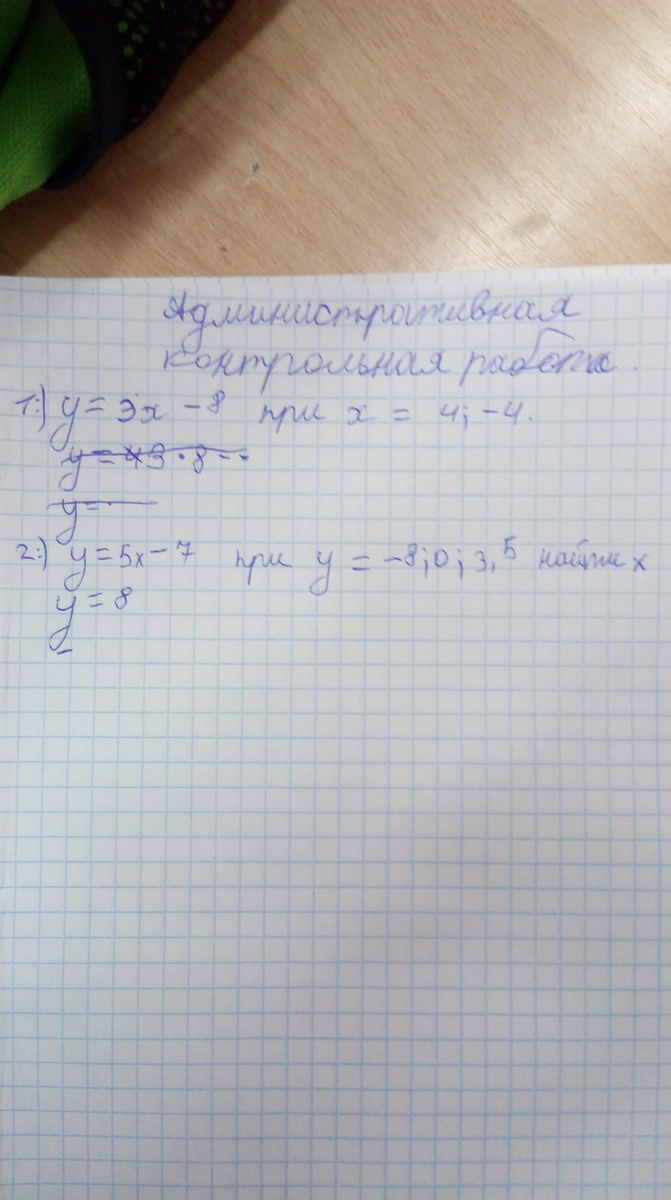 Административная
контрольная работа.
1.) y = 3x - 8 при x = 4; -4.
y = 43 · 8 -
y = ·
2.) y = 5x - 7 при y = -8; 0; 3,5 найти x
y = 8